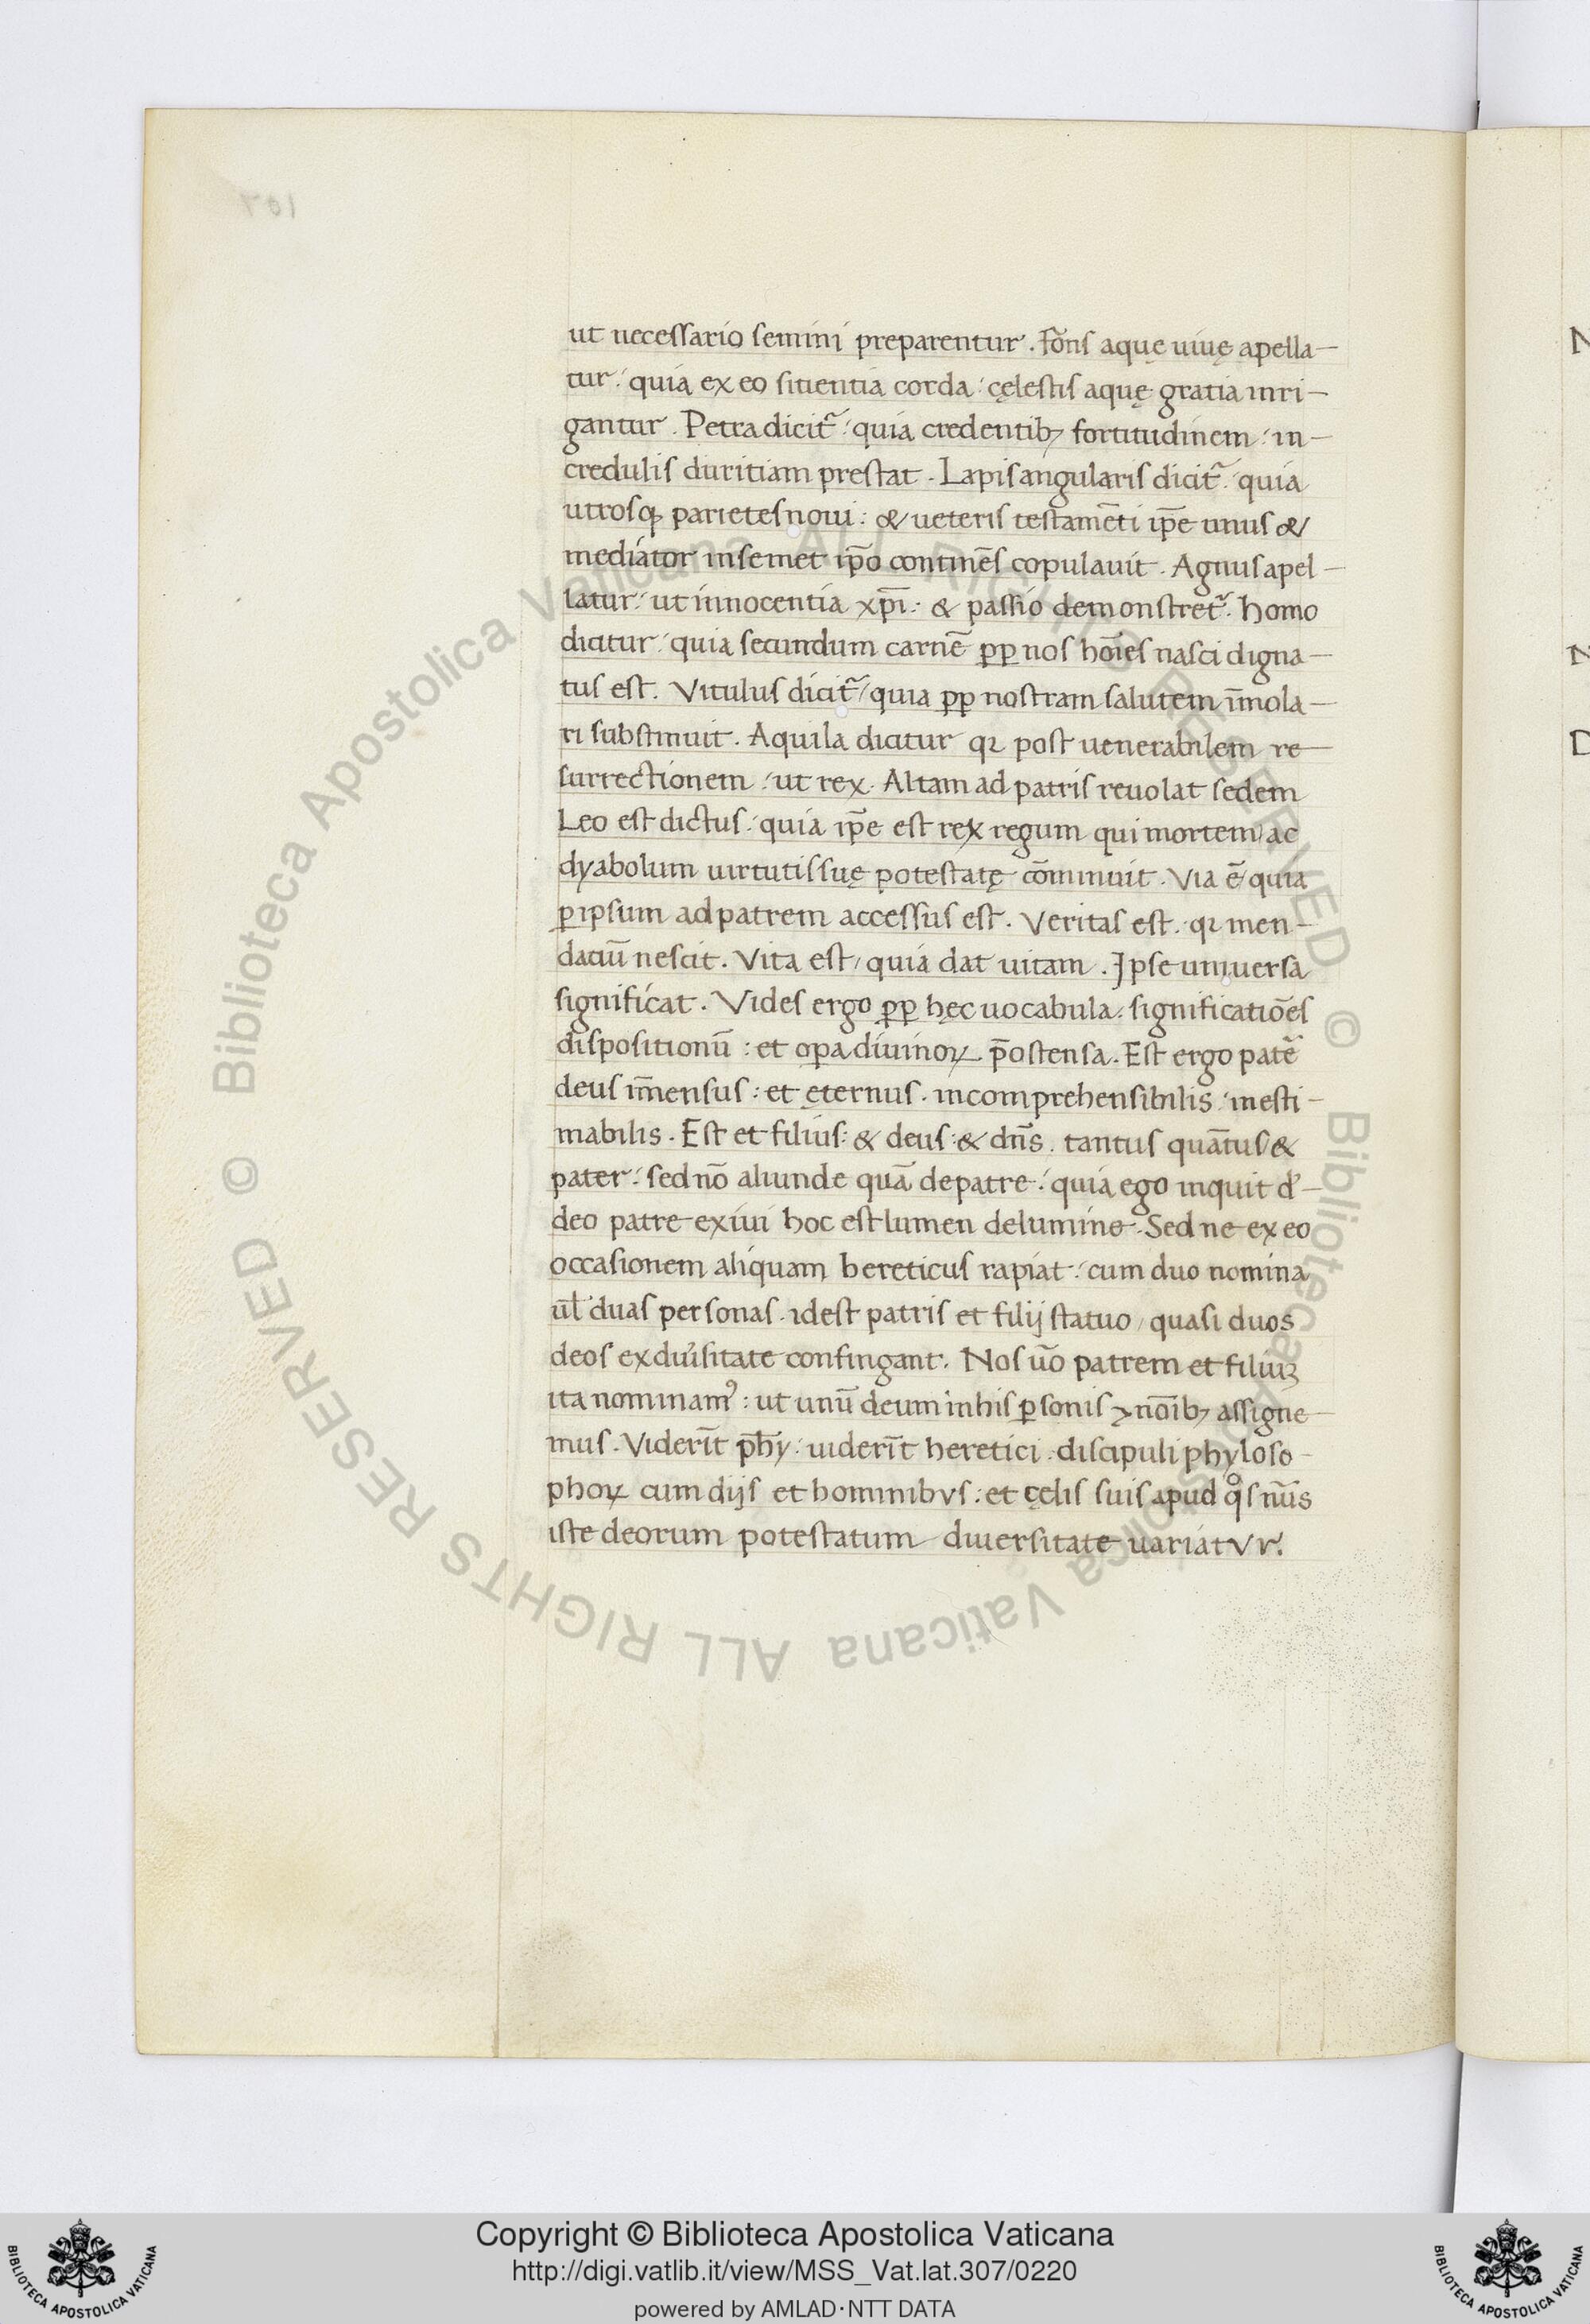 ut necessario semini preparentur. fōns aquę uiuę apella–
tur: quia ex eo sitientia corda: cęlestis aquę gratia inri–
gantur. Petra dicit᷑: quia credentibꝫ fortitudinem: in–
credulis duritiam prestat. Lapis angularis dicit᷑. quia
utrosqꝫ parietes noui: & ueteris testamēti ip̄e unus &
mediator in semet ip̄o continēs copulauit. Agnus apel–
latur: ut innocentia xp̄i: & passio demonstret᷑. homo
dicitur: quia secundum carnē ꝓꝑ nos hoīes nasci digna–
tus est. Vitulus dicit᷑: quia ꝓꝑ nostram salutem īmola–
ri substinuit. Aquila dicitur qꝛ post uenerabilem re–
surrectionem: ut rex. Altam ad patris reuolat sedem
Leo est dictus: quia ip̄e est rex regum qui mortem ac
dyabolum uirtutis suę potestatę cōminuit. Via ē quia
ꝑ ipsum ad patrem accessus est. Veritas est. qꝛ men–
daciū nescit. Vita est, quia dat uitam. Ipse uniuersa
significat. Vides ergo ꝓꝑ hęc uocabula: significatiōes
dispositionū: et oꝑa diuinoꝝ p̄ostensa. Est ergo patē
deus īmensus: et ęternus. incomprehensibilis: inesti–
mabilis. Est et filius: & deus: & dn̄s. tantus quātus &
pater: sed nō aliunde quā de patre: quia ego inquit d᾽–
deo patre exiui hoc est lumen de lumine. Sed ne ex eo
occasionem aliquam hereticus rapiat: cum duo nomina
ūl duas personas. idest patris et filij statuo, quasi duos
deos ex du᾽sitate confingant. Nos ūo patrem et filiuꝫ
ita nominamꝰ: ut unū deum in his ꝑsonis & noīibꝫ assigne–
mus. Viderīt ph̄y: uiderīt heretici. discipuli phyloso–
phoꝝ cum dijs et hominibus: et cęlis suis apud qͦs nūs
iste deorum potestatum diuersitate uariatur.
Copyright © Biblioteca Apostolica Vaticana
http://digi.vatlib.it/view/MSS_Vat.lat.307/0220
powered by AMLAD·NTT DATA
© Biblioteca Apostolica Vaticana ALL RIGHTS RESERVED © Biblioteca Apostolica Vaticana ALL RIGHTS RESERVED
BIBLIOTECA APOSTOLICA VATICANA
BIBLIOTECA APOSTOLICA VATICANA